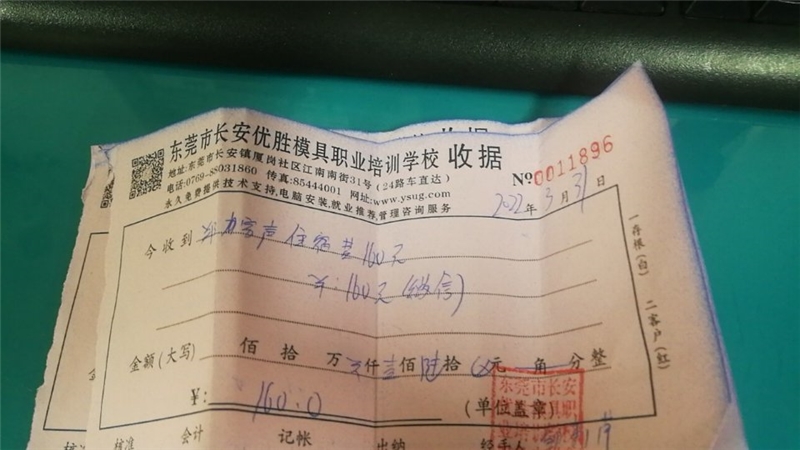 东莞市长安优胜模具职业培训学校 收据
地址:东莞市长安镇厦岗社区江南南街31号(24路车直达)
电话:0769-88031860 传真:85444001 网址:www.ysug.com
永久免费提供技术支持,电脑安装,就业推荐,管理咨询服务
№0011896
2022年3月31日
今收到 住宿费160元
¥:160元(微信)
金额(大写) 佰 拾 万 仟壹佰陆拾 元 角 分整
¥: 160.0 (单位盖章)
核准 会计 记帐 出纳 经手人
一存根(白) 二客户(红)
东莞市长安